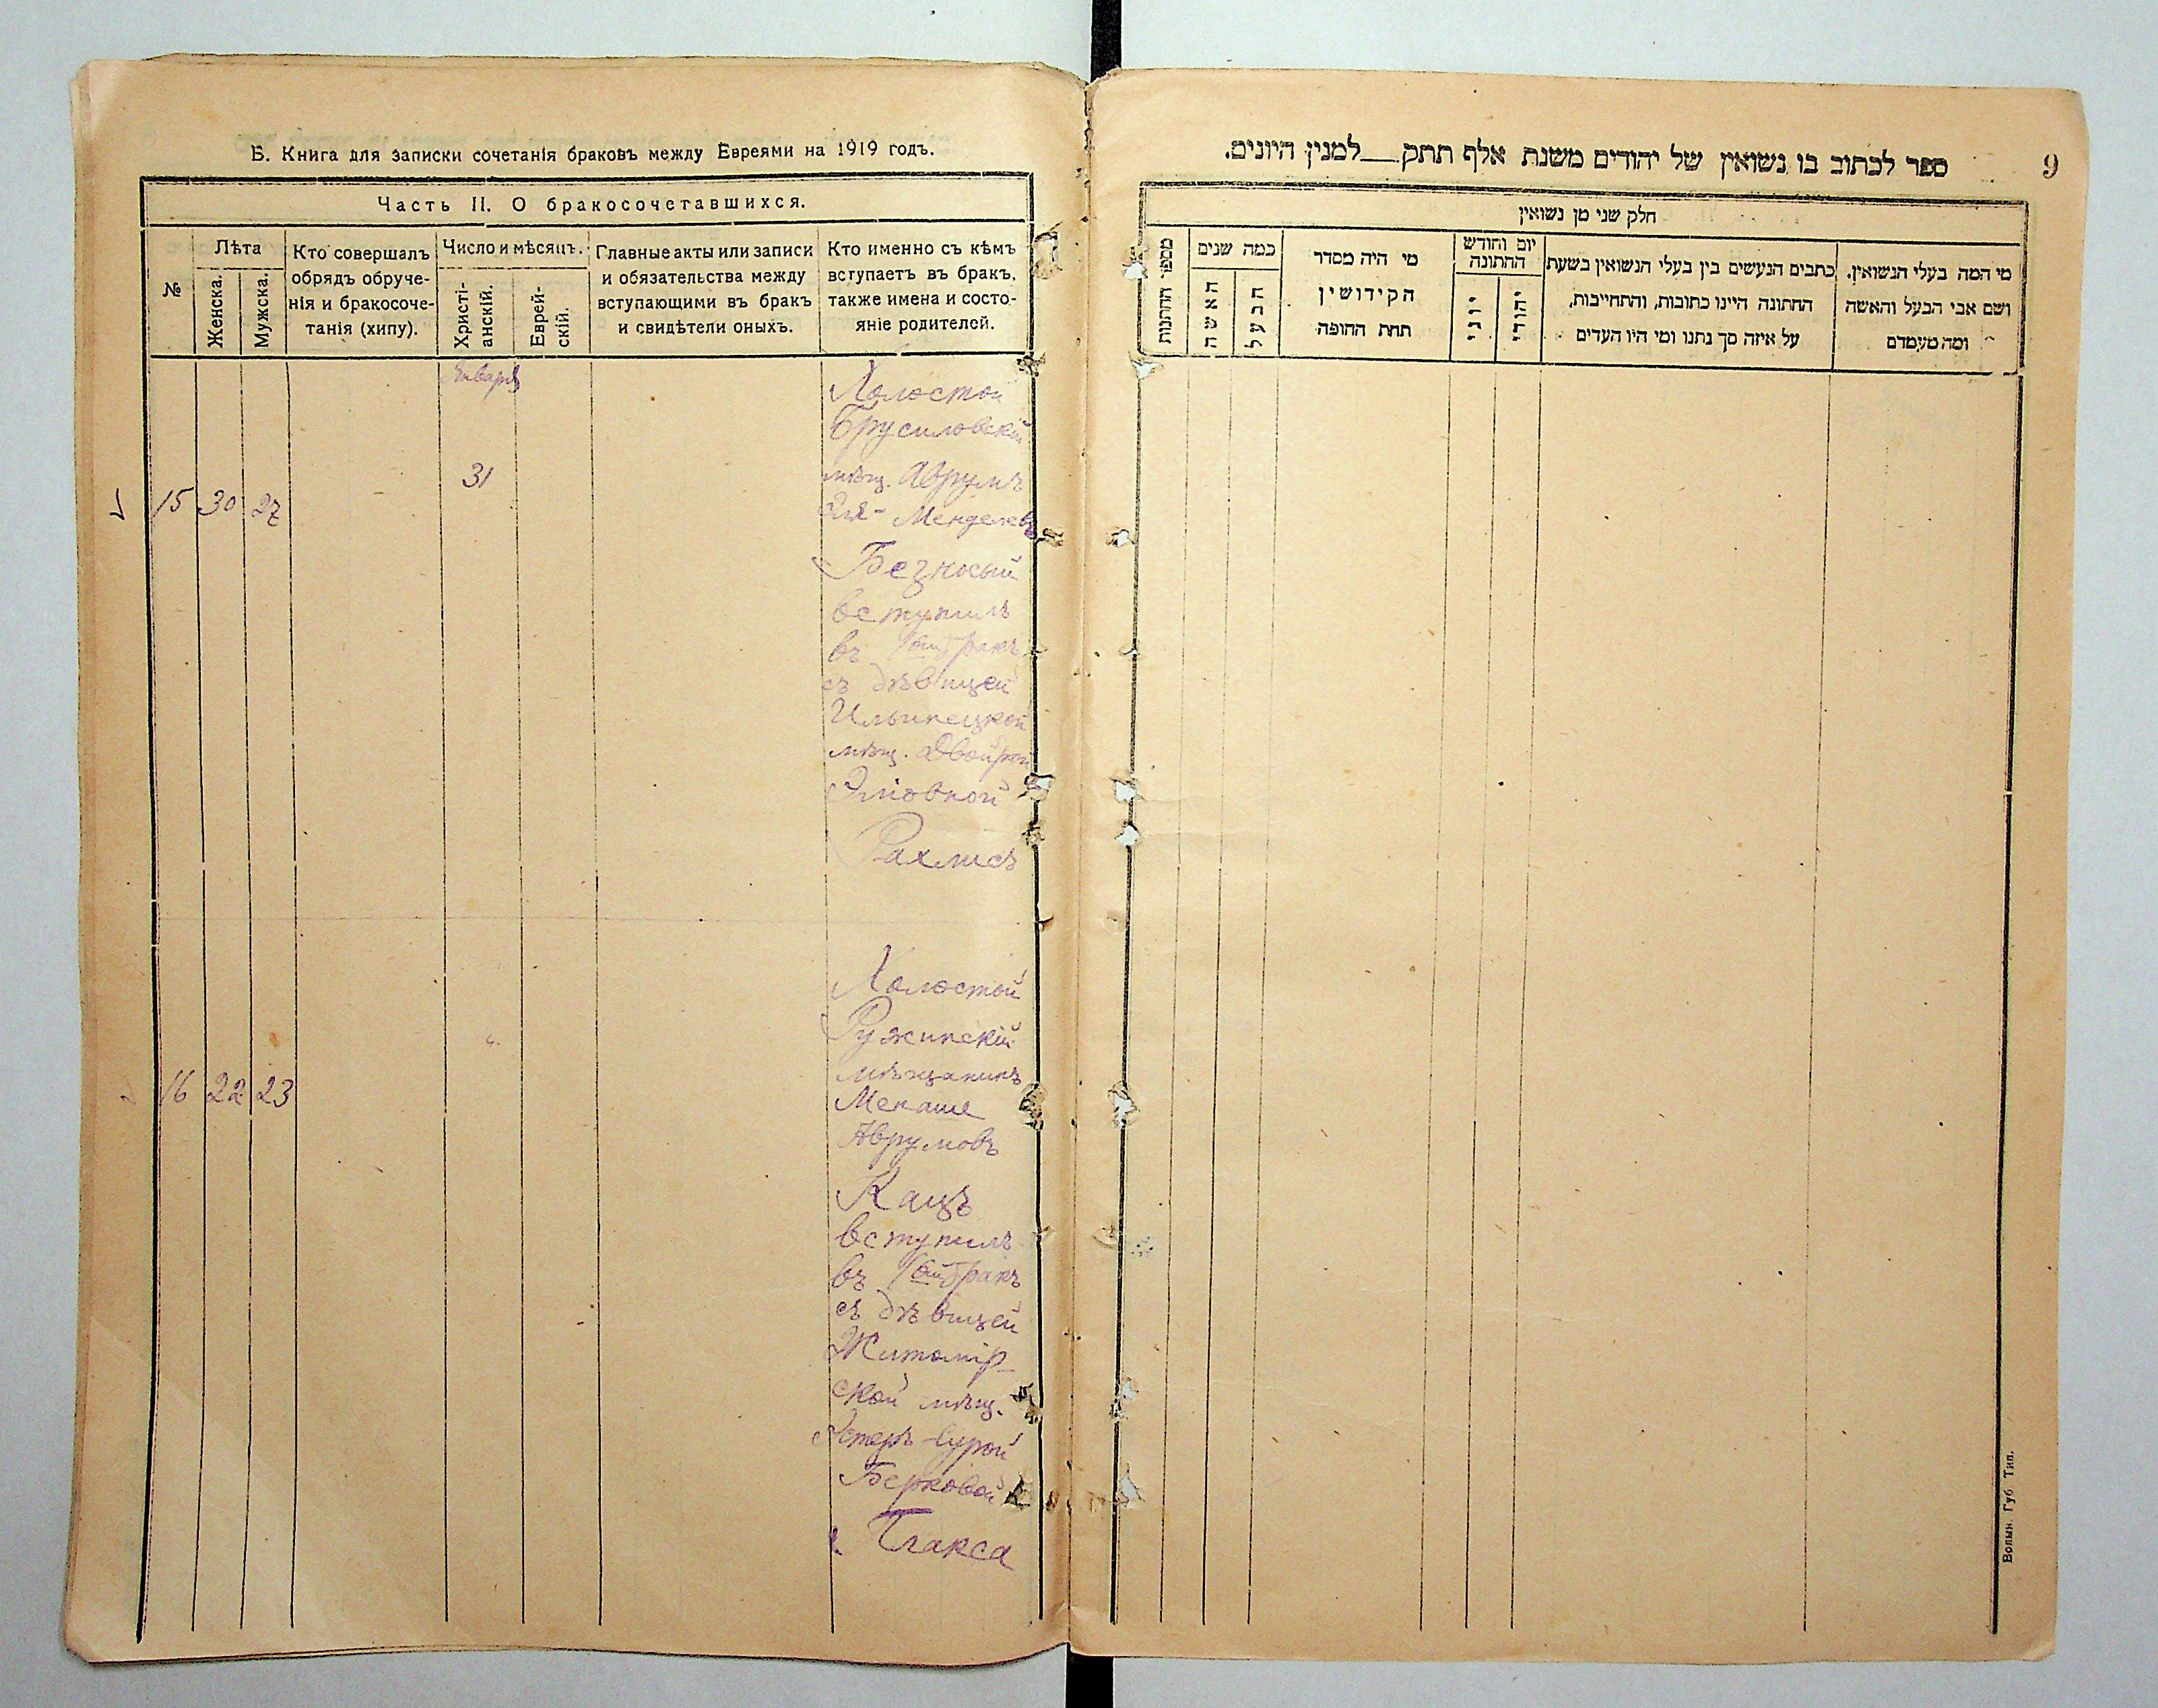 Б. Книга для записки сочетанія браковъ между Евреями на 1919 годъ.
Часть II. О бракосочетавшихся.
№
Лѣта
Женска.
Мужска.
Кто совершалъ
обрядъ обруче-
нія и бракосоче-
танія (хипу).
Число и мѣсяцъ.
Христі-
анскій.
Еврей-
скій.
Главные акты или записи
и обязательства между
вступающими въ бракъ
и свидѣтели оныхъ.
Кто именно съ кѣмъ
вступаетъ въ бракъ,
также имена и состо-
яніе родителей.
Января
15 30 27
31
Холостой
Брусиловскій
мѣщ. Аврумъ
Эля-Менделевъ
Безносый
вступилъ
въ 1ый бракъ
съ дѣвицей
Ильинецкой
мѣщ. Двойрой
Эліовной
Рахлисъ
16 22 23
"
Холостой
Ружинскій
мѣщанинъ
Менаше
Аврумовъ
Кацъ
вступилъ
въ 1ый бракъ
съ дѣвицей
Житомір-
ской мѣщ.
Эстеръ-Сурой
Берковой
Плакса
9
ספר לכתוב בו נשואין של יהודים משנת אלף תתק___למנין היונים.
חלק שני מן נשואין
מספר החתונות
כמה שנים
האשה
הבעל
מי היה מסדר
הקידושין
תחת החופה
יום וחודש
החתונה
יוני
יהודי
כתבים הנעשים בין בעלי הנשואין בשעת
החתונה היינו כתובות, והתחייבות,
על איזה סך נתנו ומי היו העדים
מי המה בעלי הנשואין.
ושם אבי הבעל והאשה
ומה מעמדם
Волын. Губ Тип.